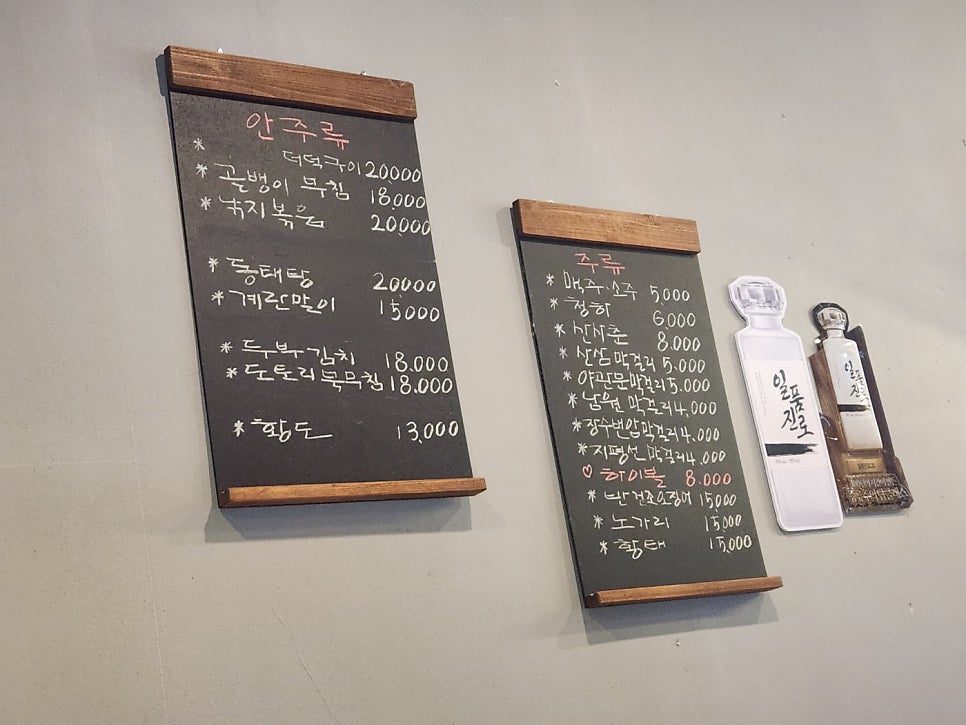 안주류
* 더덕구이 20000
* 골뱅이 무침 18,000
* 낙지볶음 20,000
* 동태탕 20000
* 계란말이 15000
* 두부김치 18.000
* 도토리묵무침 18.000
* 황도 13,000
주류
* 맥주·소주 5,000
* 청하 6,000
* 산사춘 8.000
* 산삼막걸리 5.000
* 야관문막걸리 5.000
* 남원 막걸리 4,000
* 장수번암막걸리 4.000
* 지평선 막걸리 4.000
♡ 하이볼 8.000
* 반건조오징어 15000
* 노가리 15,000
* 황태 15,000
일품
진로
일품
진로